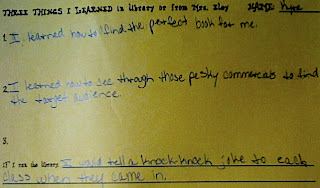 THREE THINGS I LEARNED in library or from Mrs. Eley NAME
1. I learned how to find the perfect book for me.
2. I learned how to see through those pesky commercals to find
the target audience.
3.
If I ran the library, I would tell a knock knock joke to each
class when they came in.